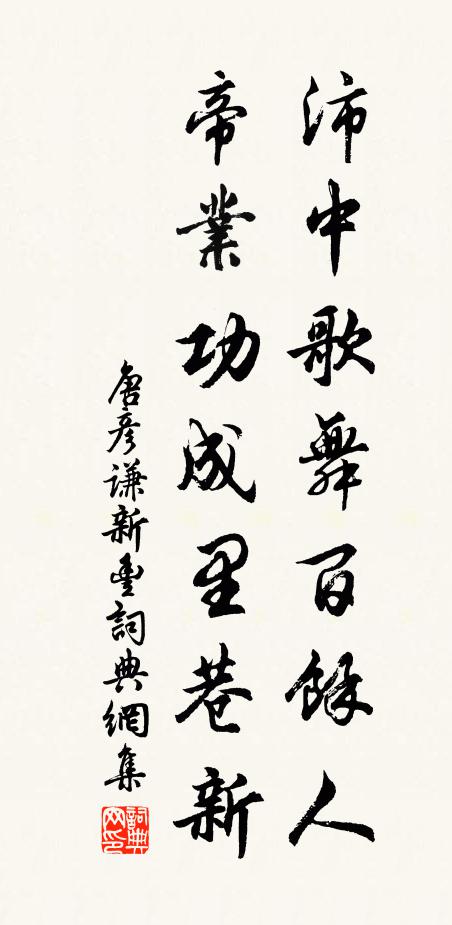 沛中歌舞百餘人
帝業功成里巷新
唐彦谦新豐詞典網集
詞典网印